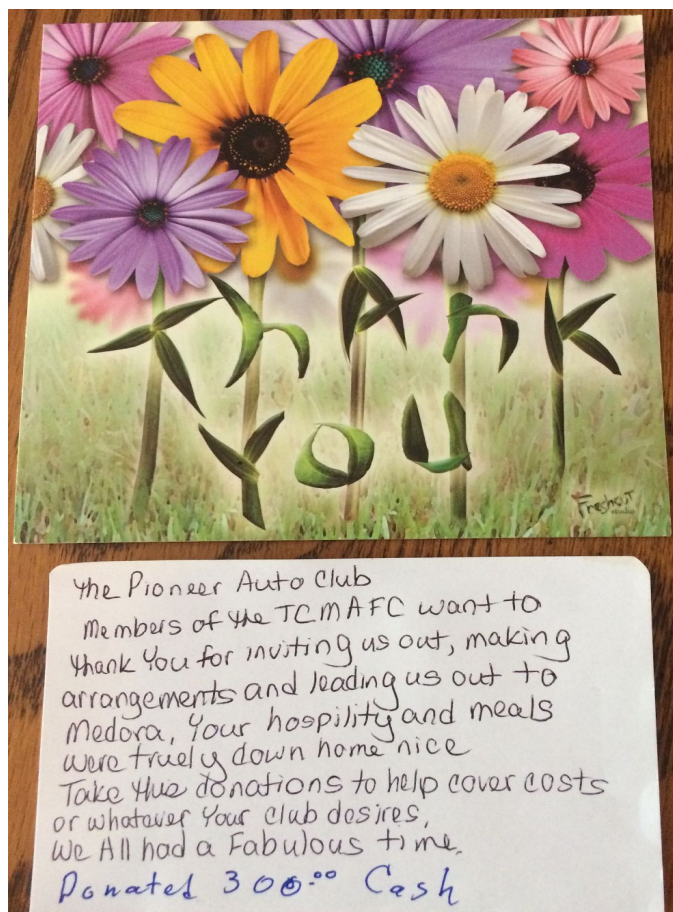 Thank
You
Freshcut
The Pioneer Auto Club
Members of the TCMAFC want to
thank You for inviting us out, making
arrangements and leading us out to
Medora, Your hospility and meals
were truely down home nice
Take the donations to help cover costs
or whatever Your club desires,
We All had a Fabulous time.
Donated 300.00 Cash